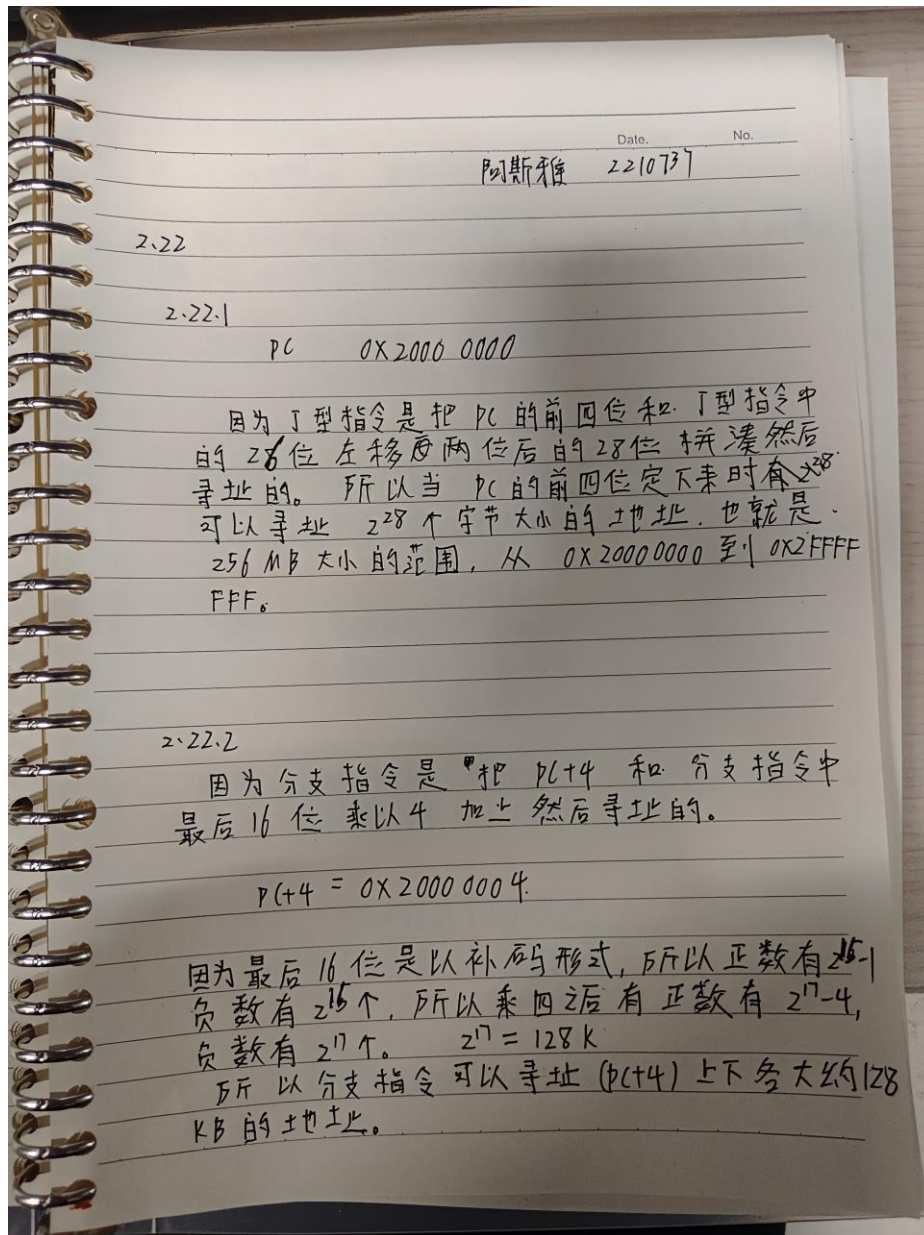 Date. No.
阿斯雅 2210737
2、22
2、22.1
PC 0X2000 0000
因为J型指令是把 PC 的前四位和 J型指令中
的 26位 左移两位后的28位 拼凑然后
寻址的。 所以当 PC的前四位定下来时有2^28
可以寻址 2^28 个字节大小的地址. 也就是.
256 MB 大小的范围, 从 0X20000000 到 0X2FFFF
FFF。
2、22.2
因为分支指令是 把 PC+4 和 分支指令中
最后16位 乘以4 加上 然后寻址的。
PC+4 = 0X2000 0004.
因为最后16位是以补码形式, 所以正数有2^15-1
负数有2^15个, 所以乘四之后有 正数有 2^17-4,
负数有2^17个。 2^17 = 128K
所以分支指令可以寻址 (PC+4) 上下各大约128
KB的地址。